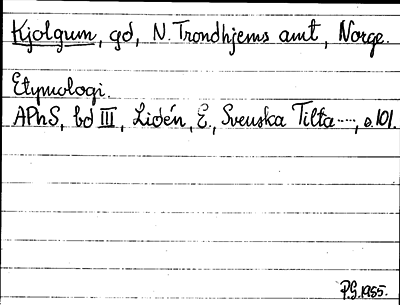 Kjolgum, gd, N. Trondhjems amt, Norge.
Etymologi.
APhS, bd III, Lidén, E., Svenska Tilta....., s. 101.
P.G. 1955.